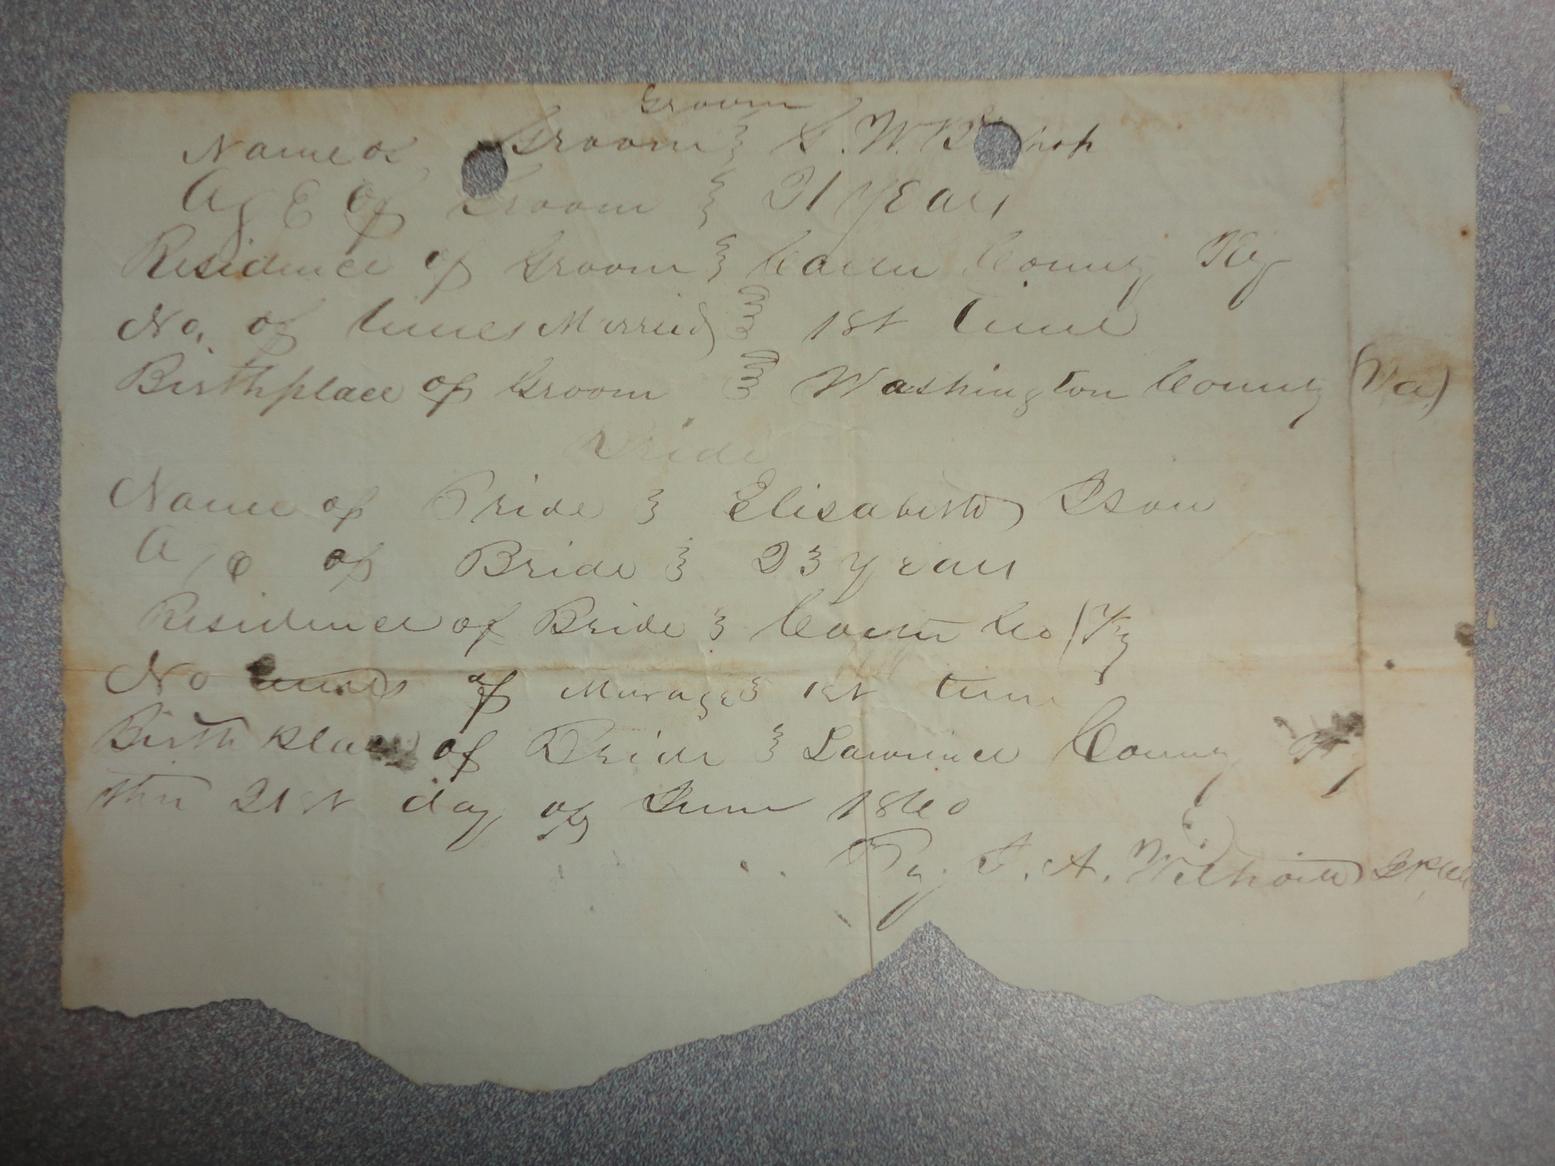 Groom
Name of Groom } S. W. B hop
Age of Groom } 21 years
Residence of Groom } Carter County Ky
No. of times Married } 1st time
Birthplace of Groom } Washington County (Va)
Bride
Name of Bride } Elisabeth Ison
Age of Bride } 23 years
Residence of Bride } Carter Co (Ky
No times of Marage } 1st time
Birth place of Bride } Lawrence County Ky
this 21st day of June 1860
By A. Wilhoit